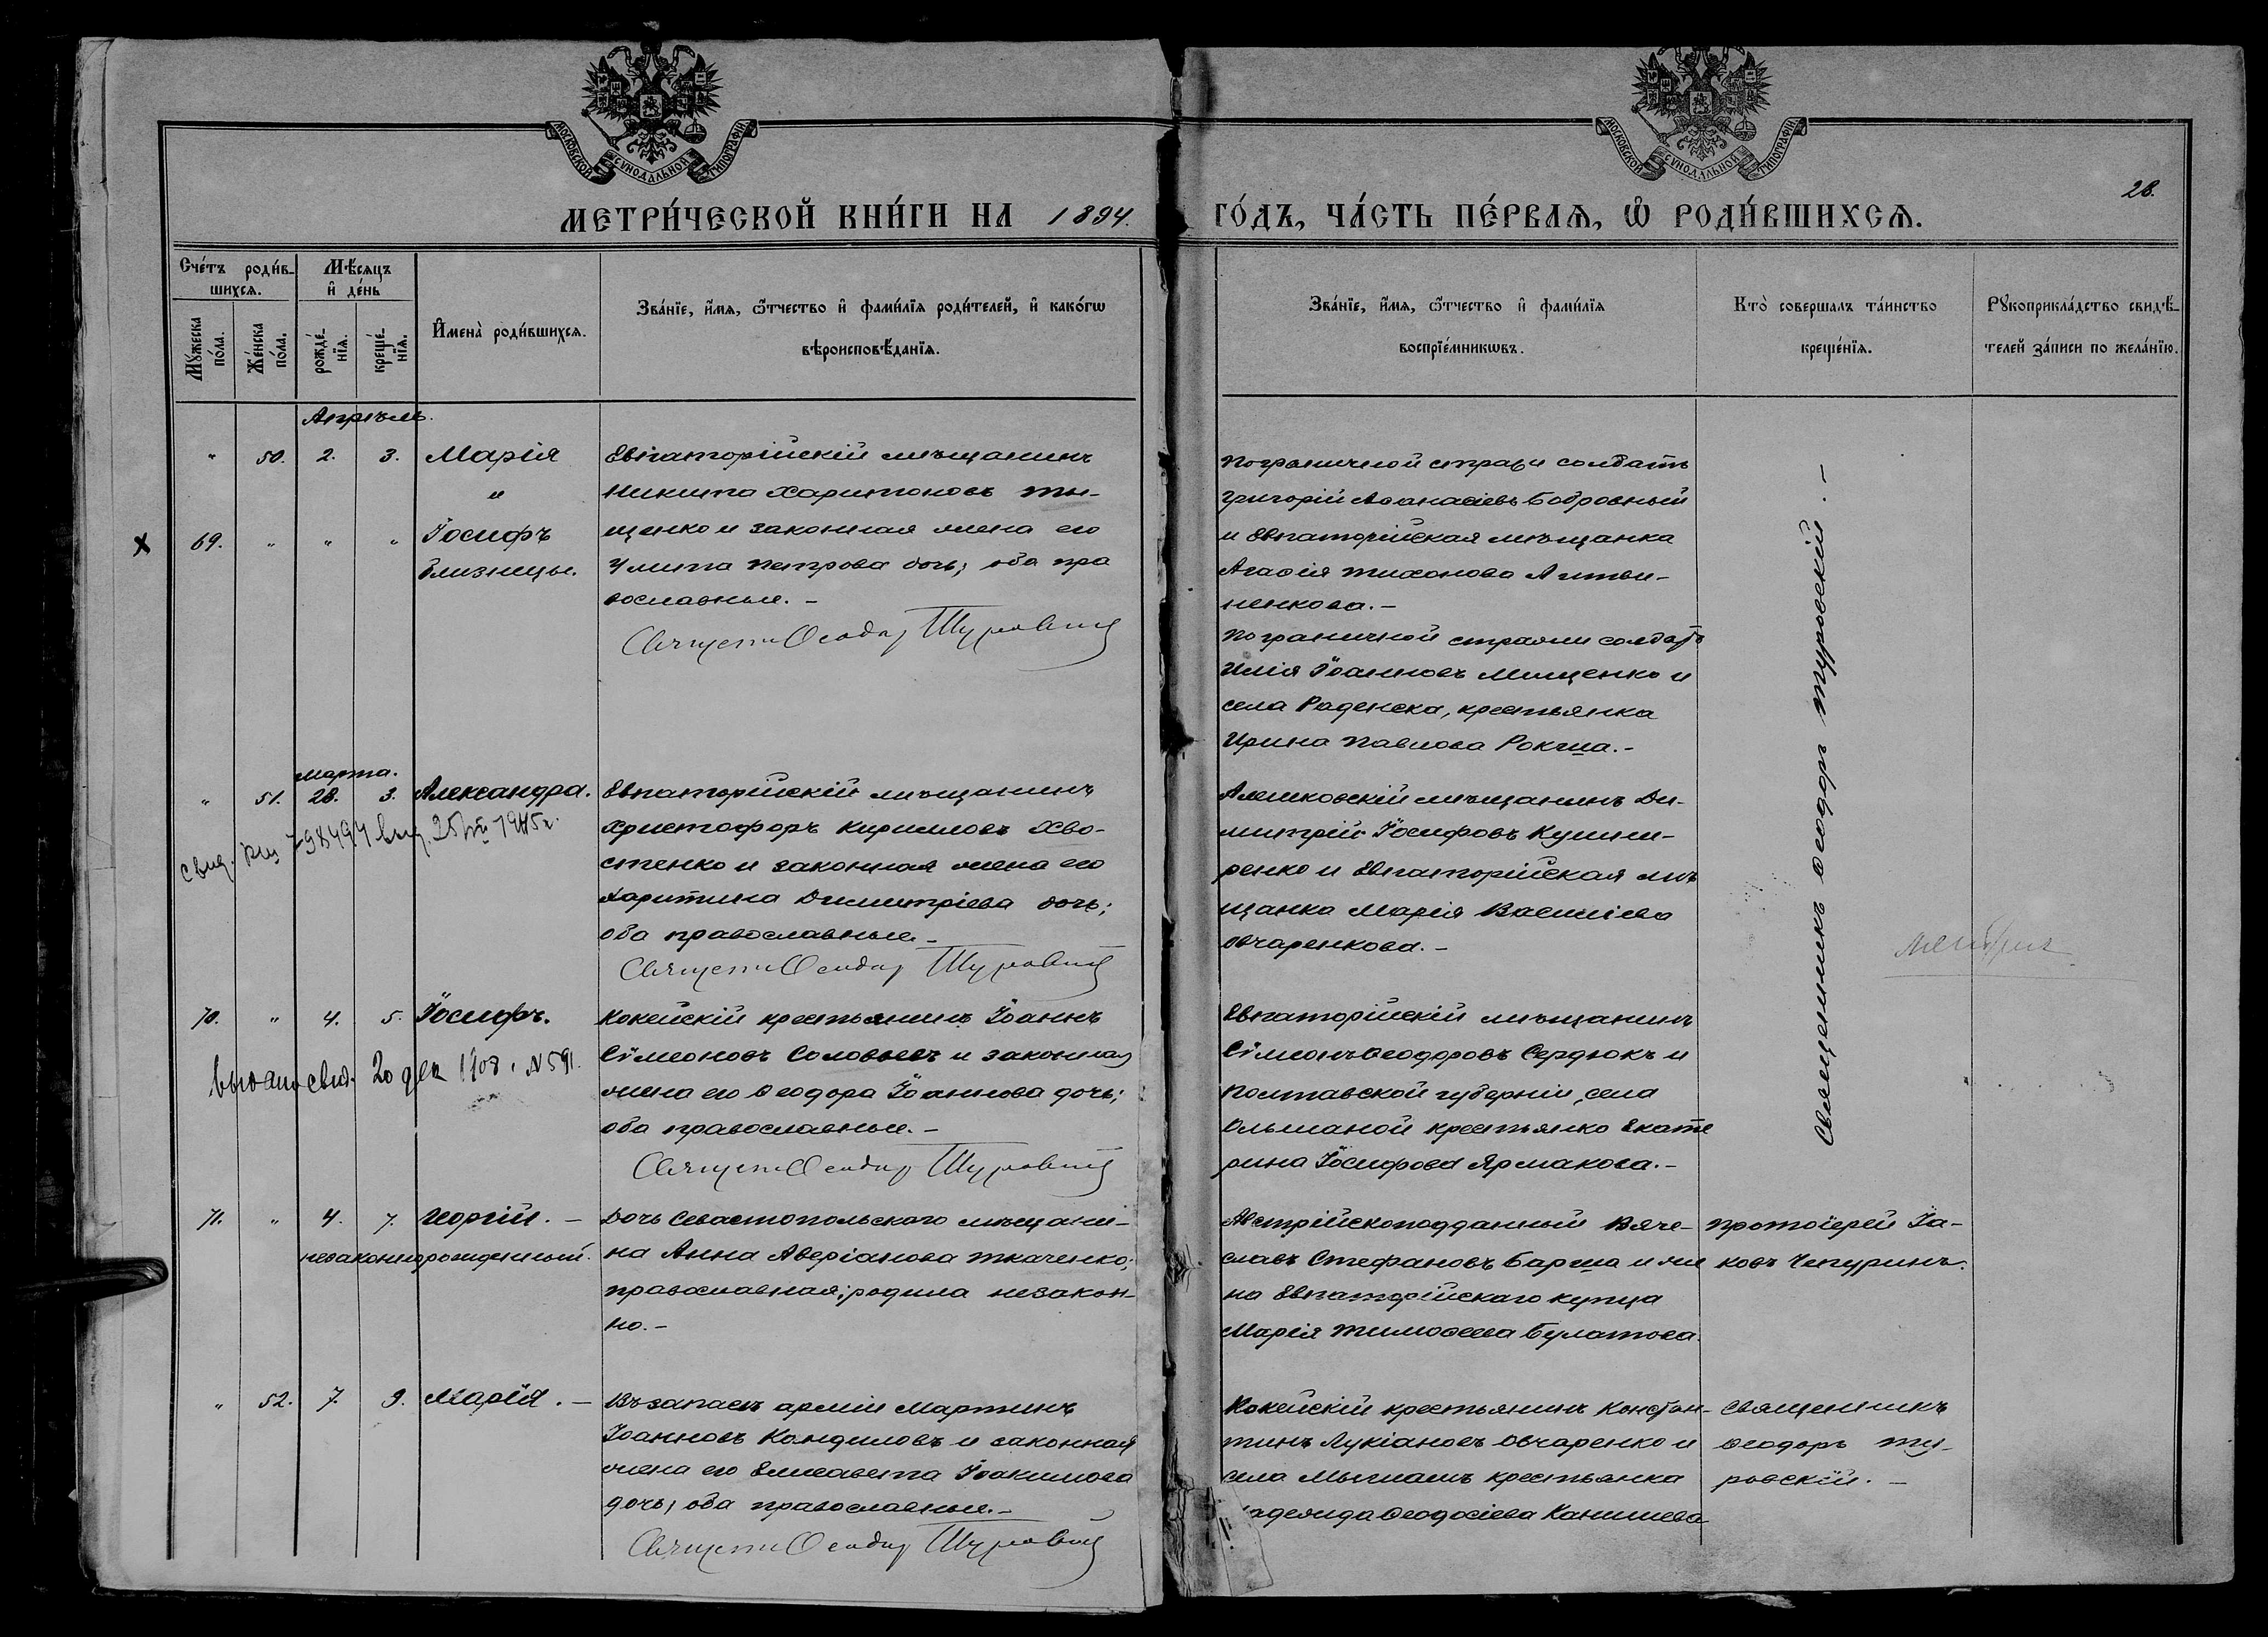 МОСКОВСКОЙ СѴНОДАЛЬНОЙ ТИПОГРАФІИ
МОСКОВСКОЙ СѴНОДАЛЬНОЙ ТИПОГРАФІИ
28.
МЕТРИ́ЧЕСКОЙ КНИ́ГИ НА 1894. ГО́ДЪ, ЧА́СТЬ ПЕ́РВАѦ, Ѽ РОДИ́ВШИХСѦ.
Сче́тъ роди́в-
шихсѧ.
Мѣ́сяцъ
и҆ де́нь
Мꙋ́жеска
по́ла.
Же́нска
по́ла.
рожде́-
нїѧ.
креще́-
нїѧ.
И҆мена̀ роди́вшихсѧ.
Зва́нїе, и҆́мѧ, ѻ҆́тчество и҆ фами́лїѧ роди́телей, и҆ како́гѡ
вѣроисповѣ́данїѧ.
Зва́нїе, и҆́мѧ, ѻ҆́тчество и҆ фами́лїѧ
воспрїе́мникѡвъ.
Кто̀ соверша́лъ та́инство
креще́нїѧ.
Рꙋкоприкла́дство свидѣ́-
телей за́писи по жела́нїю.
Апрѣль.
" 50. 2. 3. Марія
"
x 69. " " " Іосифъ
близнецы.
Евпаторійскій мѣщанинъ
Никита Харитоновъ Ти-
щенко и законная жена его
Улита Петрова дочь; оба пра
вославные. -
Священн Ѳеодор Туровскій
Пограничной стражи солдатъ
Григорій Аѳанасіевъ Бобровный
и Евпаторійская мѣщанка
Агаѳія Тихонова Литви-
ненкова. -
Пограничной стражи солдатъ
Илія Іоанновъ Мищенко и
села Раденска, крестьянка
Ирина Павлова Рокша. -
Священникъ Ѳеодоръ Туровскій. -
Марта.
" 51. 28. 3. Александра.
свид. 798494 выд. 25/VII 1945г.
Евпаторійскій мѣщанинъ
Христофоръ Кирилловъ Хво-
стенко и законная жена его
Харитина Димитріева дочь;
оба православные. -
Священн Ѳеодор Туровскій
Алешковскій мѣщанинъ Ди-
митрій Іосифовъ Кушни-
ренко и Евпаторійская мѣ
щанка Марія Василіева
Овчаренкова. -
70. " 4. 5. Іосифъ.
выдано свид. 20 дек 1908. N 591.
Кокейскій крестьянинъ Іоаннъ
Сімеоновъ Соловьевъ и законная
жена его Ѳеодора Іоаннова дочь;
оба православные. -
Священн Ѳеодор Туровскій
Евпаторійскій мѣщанинъ
Сімеонъ Ѳеодоровъ Сердюкъ и
Полтавской губерніи, села
Ольшаной крестьянка Екате
рина Іосифова Ярмакова. -
71. " 4. 7. Георгій. -
незаконнорожденный.
Дочь Севастопольскаго мѣщани-
на Анна Аверіанова Ткаченко;
православная; родила незакон-
но. -
Австрійскоподданный Вяче-
славъ Стефановъ Барша и же
на Евпаторійскаго купца
Марія Тимоѳеева Булатова.
Протоіерей Іа-
ковъ Чепуринъ.
" 52. 7. 9. Марія. -
Въ запасѣ арміи Мартинъ
Іоанновъ Кандиловъ и законная
жена его Елисавета Іоакимова
дочь, оба православные. -
Священн Ѳеодор Туровскій
Кокейскій крестьянинъ Констан-
тинъ Лукіановъ Овчаренко и
села крестьянка
Надежда Ѳеодосіева Канишева
Священникъ
Ѳеодоръ Ту-
ровскій. -